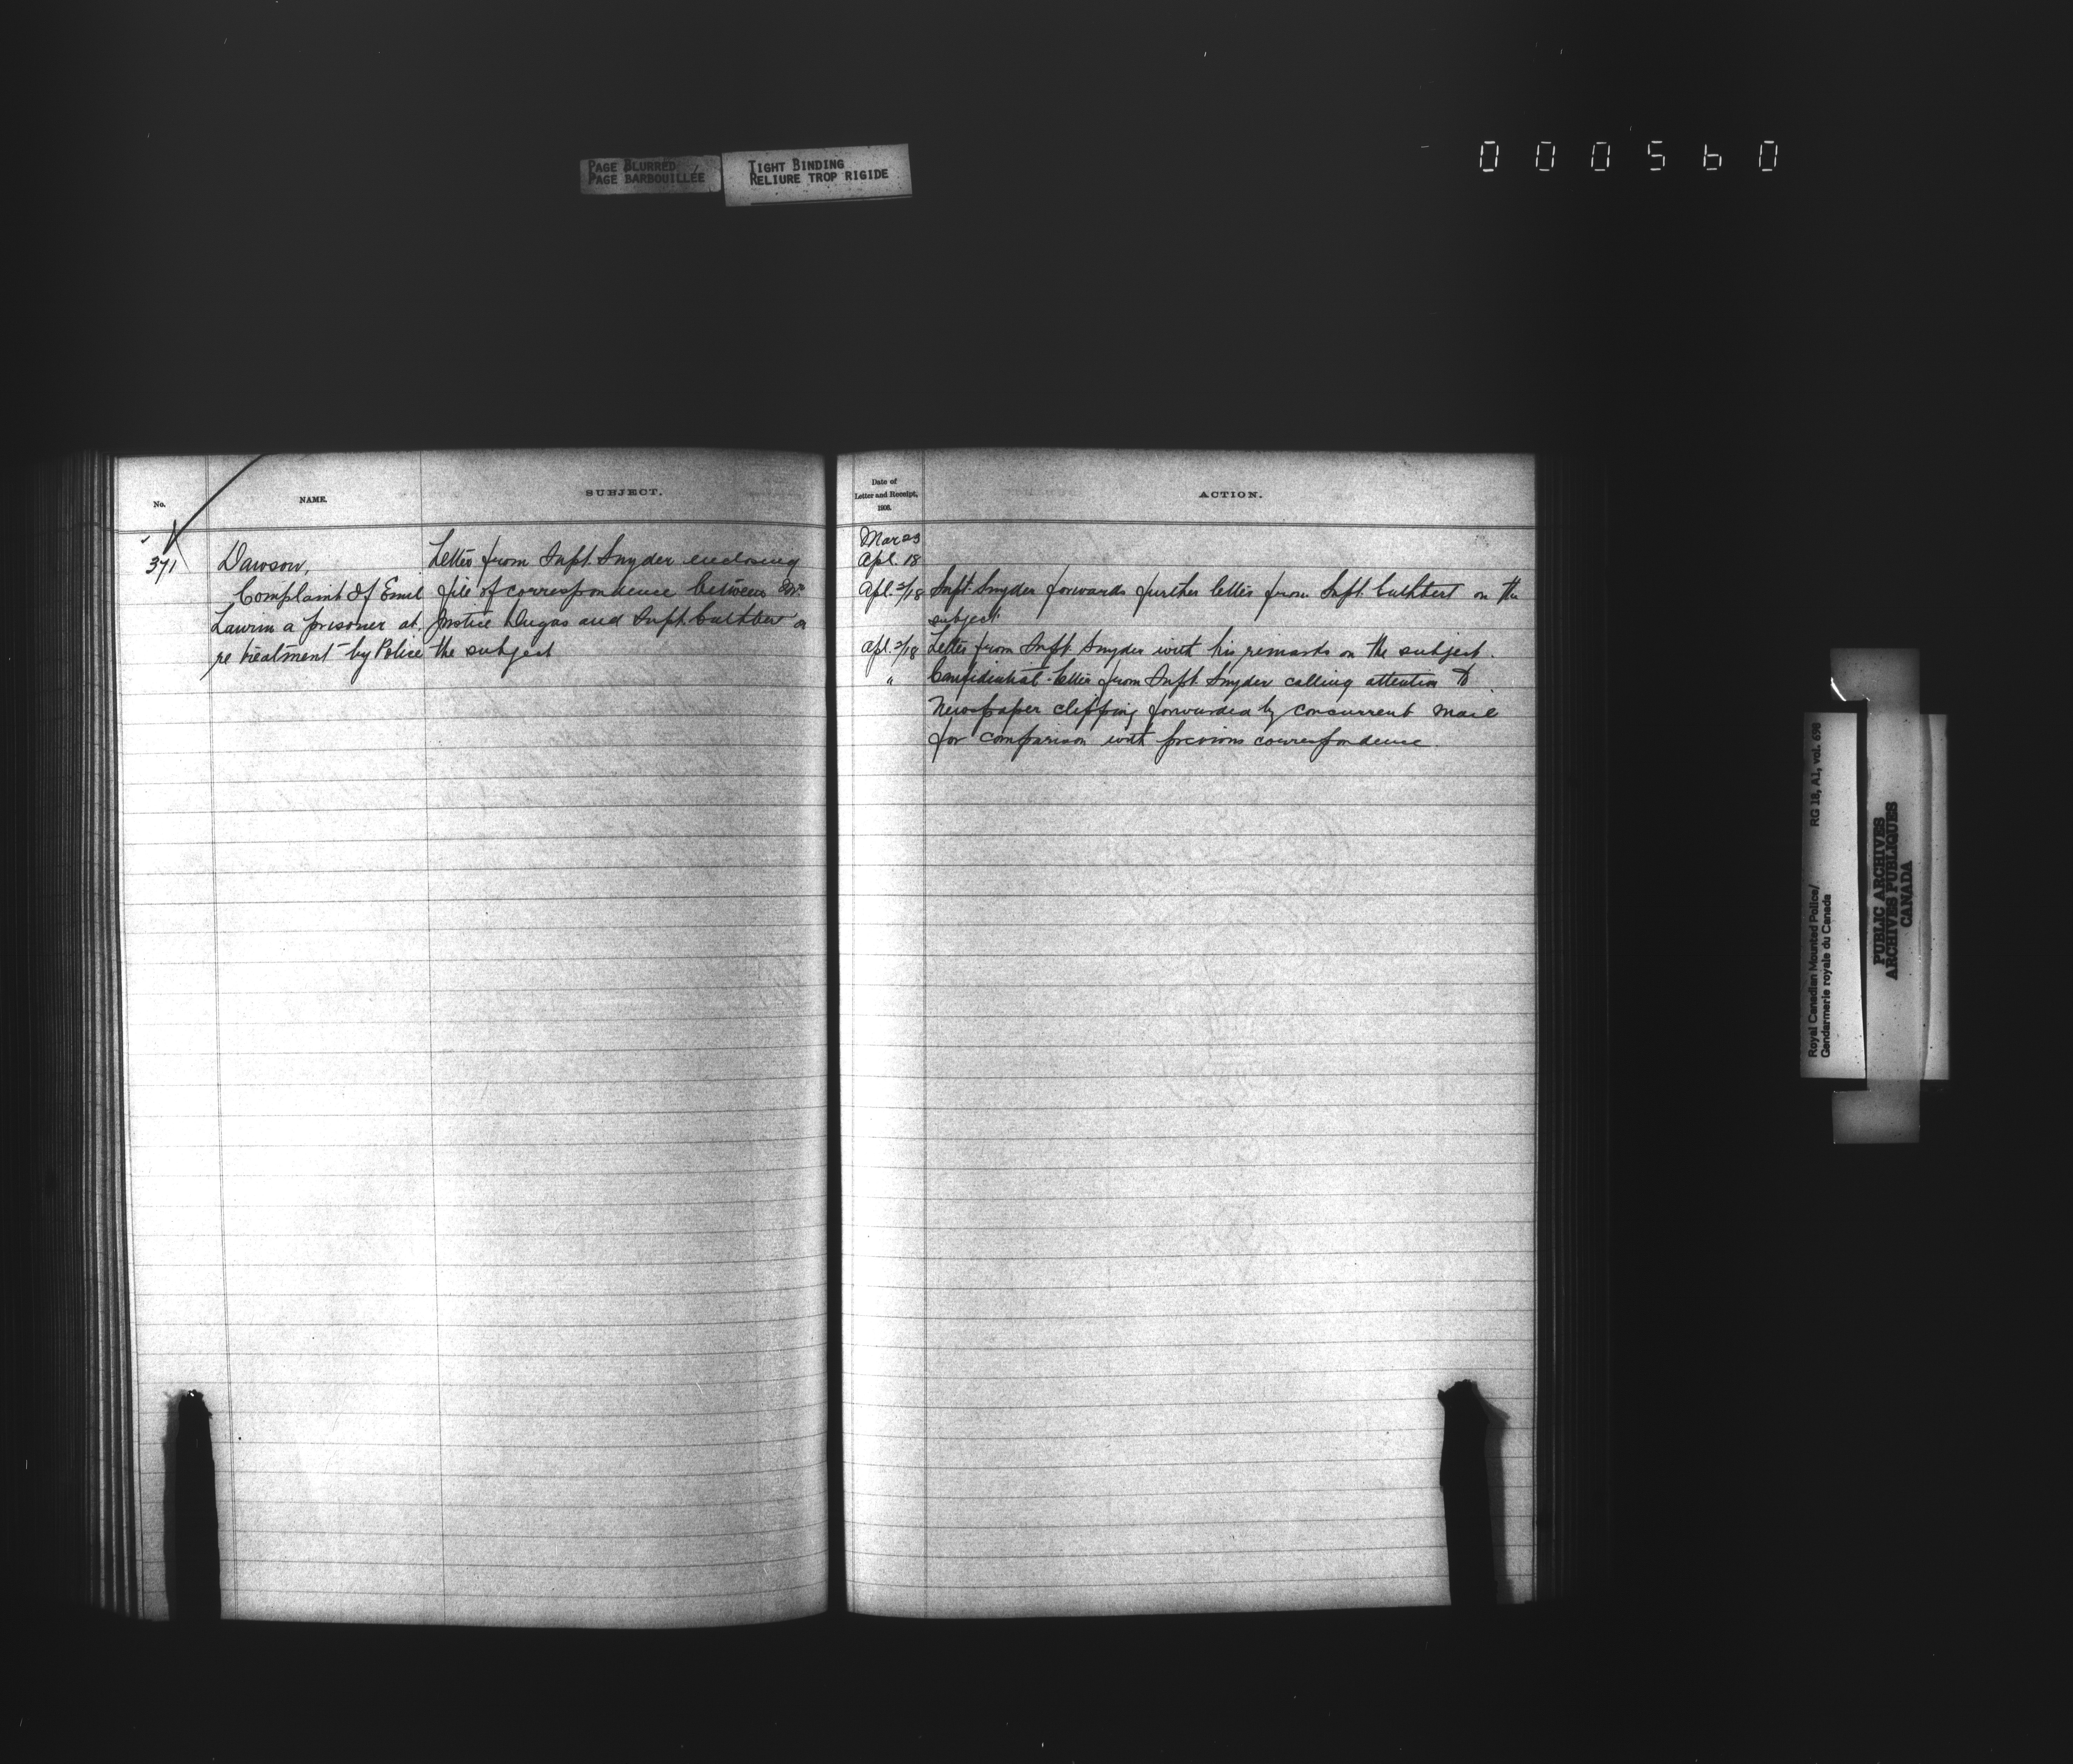 PAGE BLURRED
PAGE BARBOUILLÉE
TIGHT BINDING
RELIURE TROP RIGIDE
000560
No.
NAME.
SUBJECT.
371
Dawson,
Complaint of Emil
Laurin a prisoner at
re treatment by Police
Letter from Supt. Snyder enclosing
file of correspondence between Mr.
Justice Dugas and Supt. Cuthbert on
the subject
Date of
Letter and Receipt,
1906.
ACTION.
Mar 23
Apl. 18
Apl. 2/18 Supt. Snyder forwards further letter from Supt. Cuthbert on the
subject.
Apl. 2/18 Letter from Supt. Snyder with his remarks on the subject.
" Confidential letter from Supt. Snyder calling attention to
Newspaper clipping forwarded by concurrent mail
for comparison with previous correspondence.
Royal Canadian Mounted Police/
Gendarmerie royale du Canada
RG 18, A1, vol. 698
PUBLIC ARCHIVES
ARCHIVES PUBLIQUES
CANADA